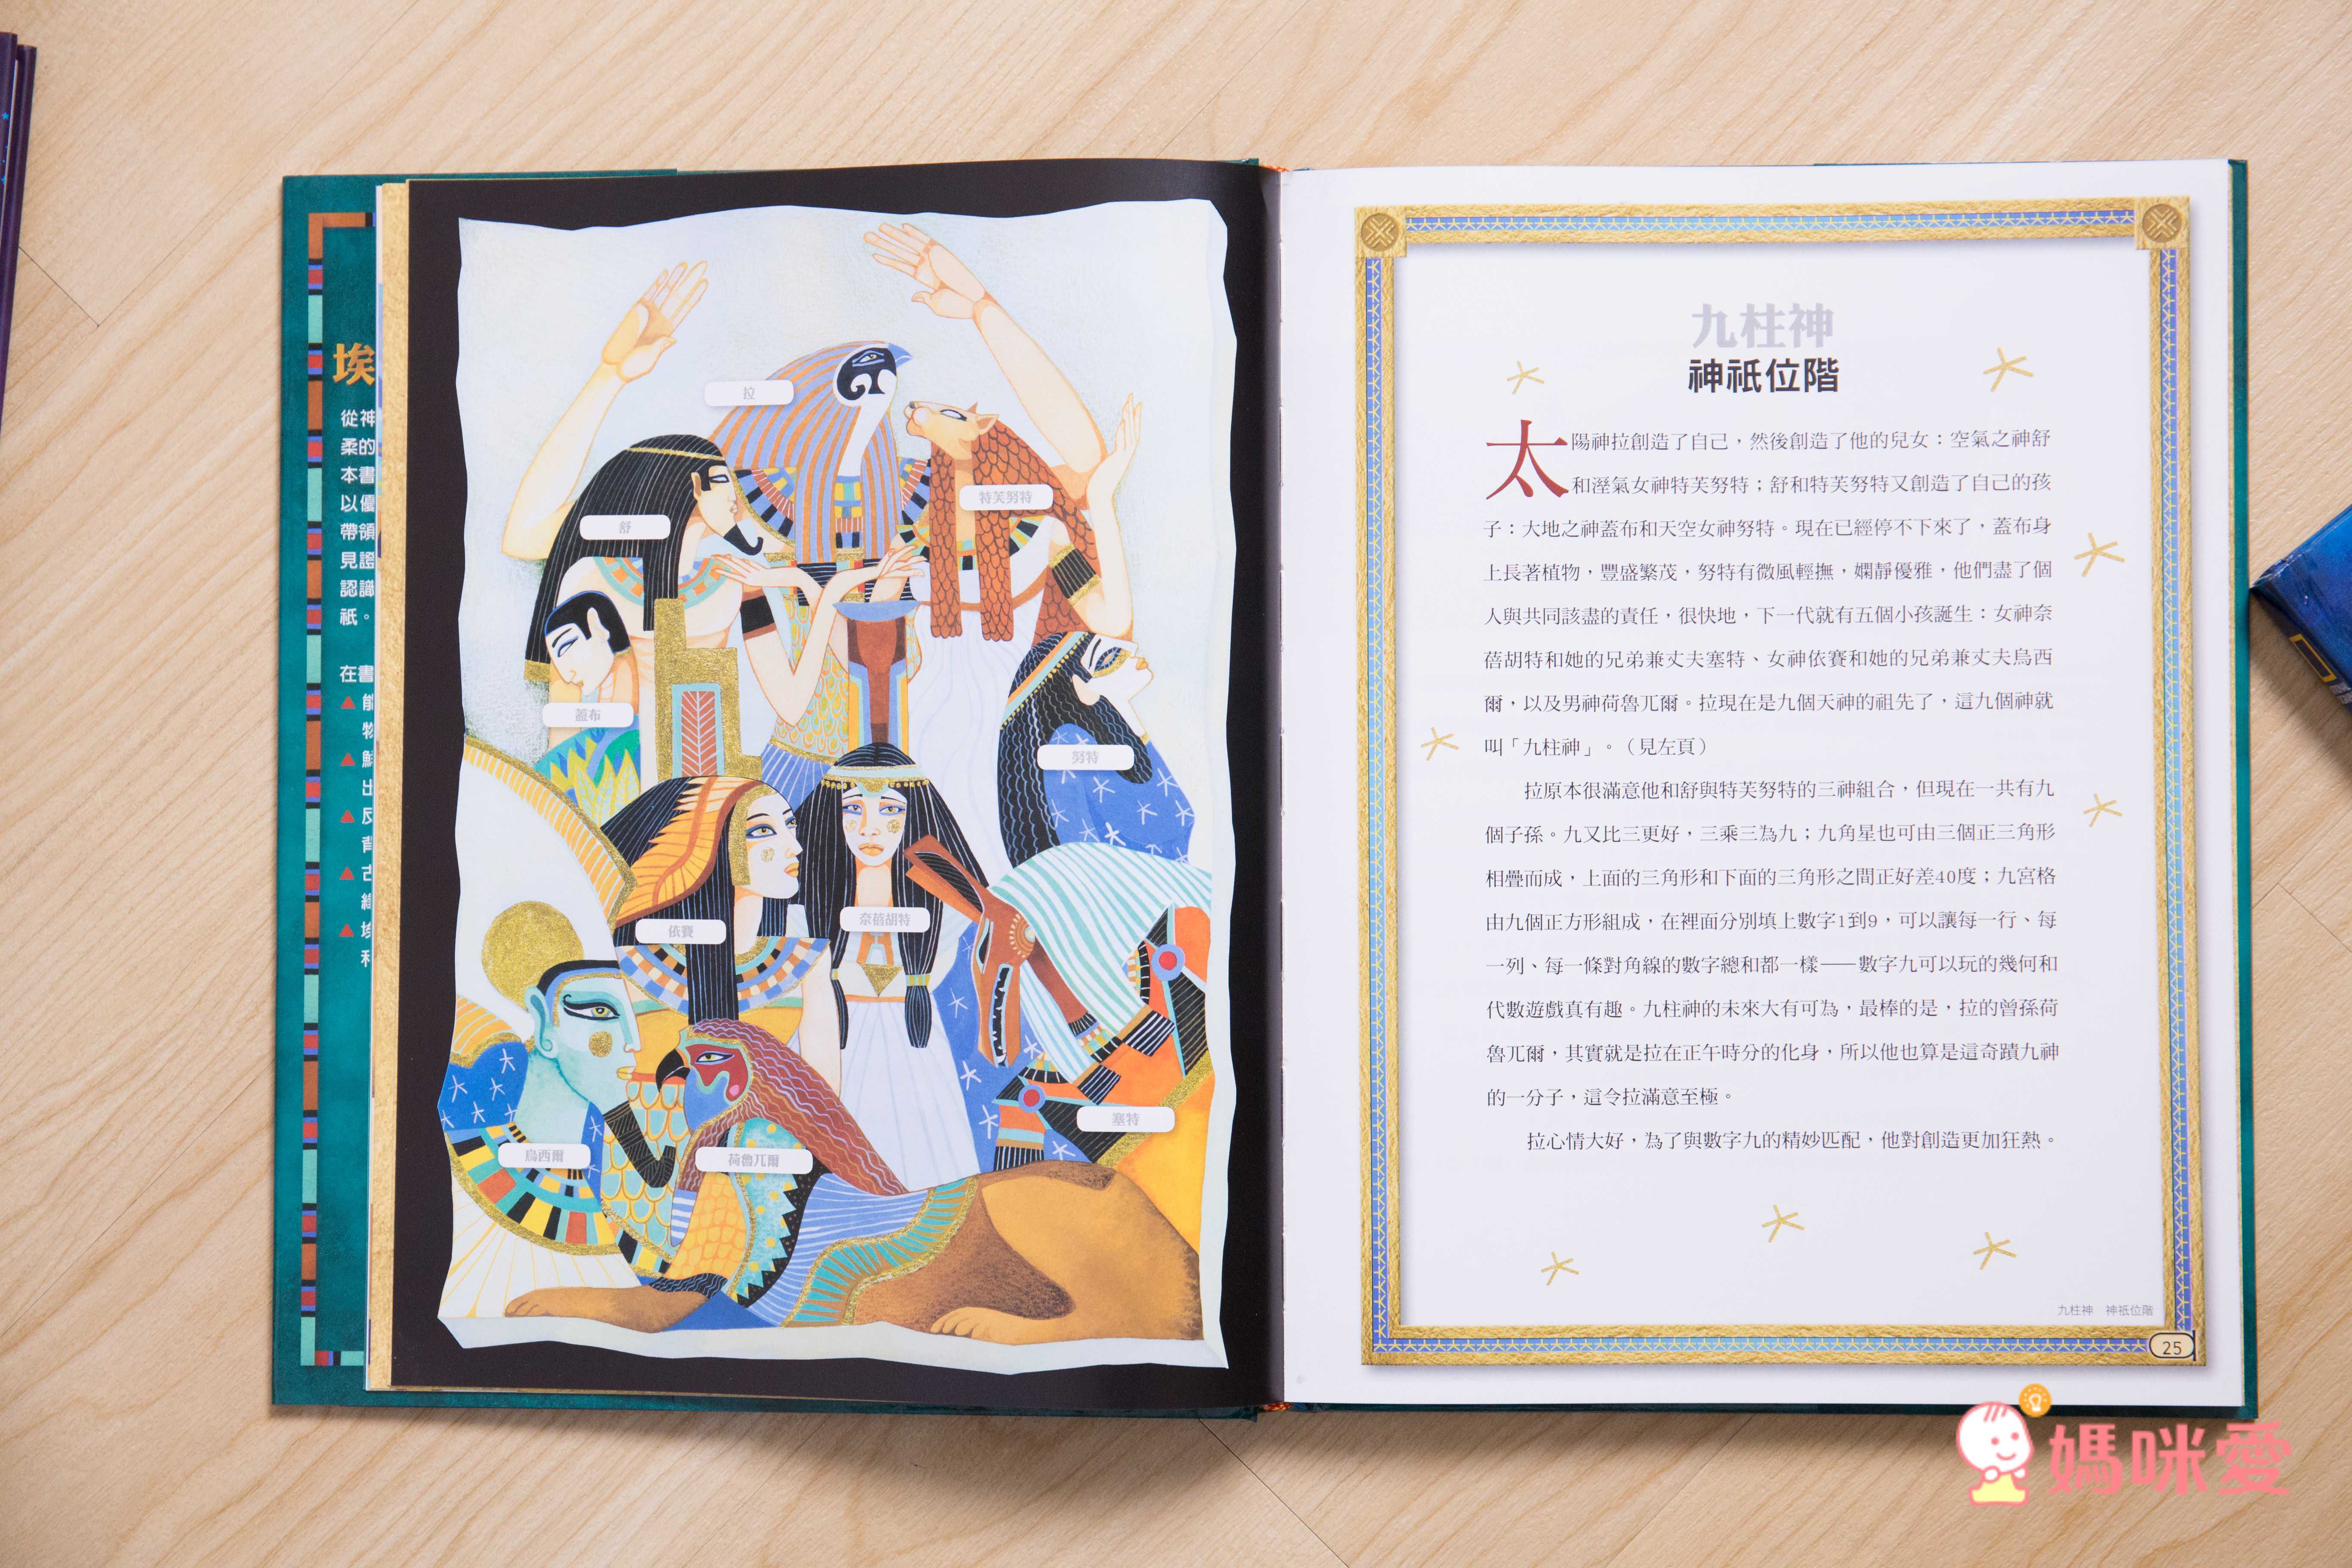 埃
從神
柔的
本書
以優
帶領
見證
認識
祇。
在書
能
物
出
反
背
古
埃
拉
特芙努特
舒
蓋布
努特
依賽
奈蓓胡特
塞特
烏西爾
荷魯兀爾
九柱神
神祇位階
太陽神拉創造了自己，然後創造了他的兒女：空氣之神舒
和溼氣女神特芙努特；舒和特芙努特又創造了自己的孩
子：大地之神蓋布和天空女神努特。現在已經停不下來了，蓋布身
上長著植物，豐盛繁茂，努特有微風輕撫，嫻靜優雅，他們盡了個
人與共同該盡的責任，很快地，下一代就有五個小孩誕生：女神奈
蓓胡特和她的兄弟兼丈夫塞特、女神依賽和她的兄弟兼丈夫烏西
爾，以及男神荷魯兀爾。拉現在是九個天神的祖先了，這九個神就
叫「九柱神」。（見左頁）
拉原本很滿意他和舒與特芙努特的三神組合，但現在一共有九
個子孫。九又比三更好，三乘三為九；九角星也可由三個正三角形
相疊而成，上面的三角形和下面的三角形之間正好差40度；九宮格
由九個正方形組成，在裡面分別填上數字1到9，可以讓每一行、每
一列、每一條對角線的數字總和都一樣——數字九可以玩的幾何和
代數遊戲真有趣。九柱神的未來大有可為，最棒的是，拉的曾孫荷
魯兀爾，其實就是拉在正午時分的化身，所以他也算是這奇蹟九神
的一分子，這令拉滿意至極。
拉心情大好，為了與數字九的精妙匹配，他對創造更加狂熱。
九柱神 神祇位階
25
媽咪愛